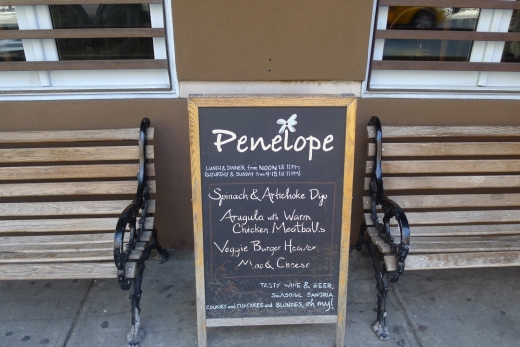 Penelope
LUNCH & DINNER from NOON till 11PM
(SATURDAY & SUNDAY from 4:15 till 11PM)
Spinach & Artichoke Dip
Arugula with Warm
Chicken Meatballs
Veggie Burger Heaven
Mac & Cheese
TASTY WINE & BEER
SEASONAL SANGRIA
COOKIES and CUPCAKES and BLONDIES, oh my!